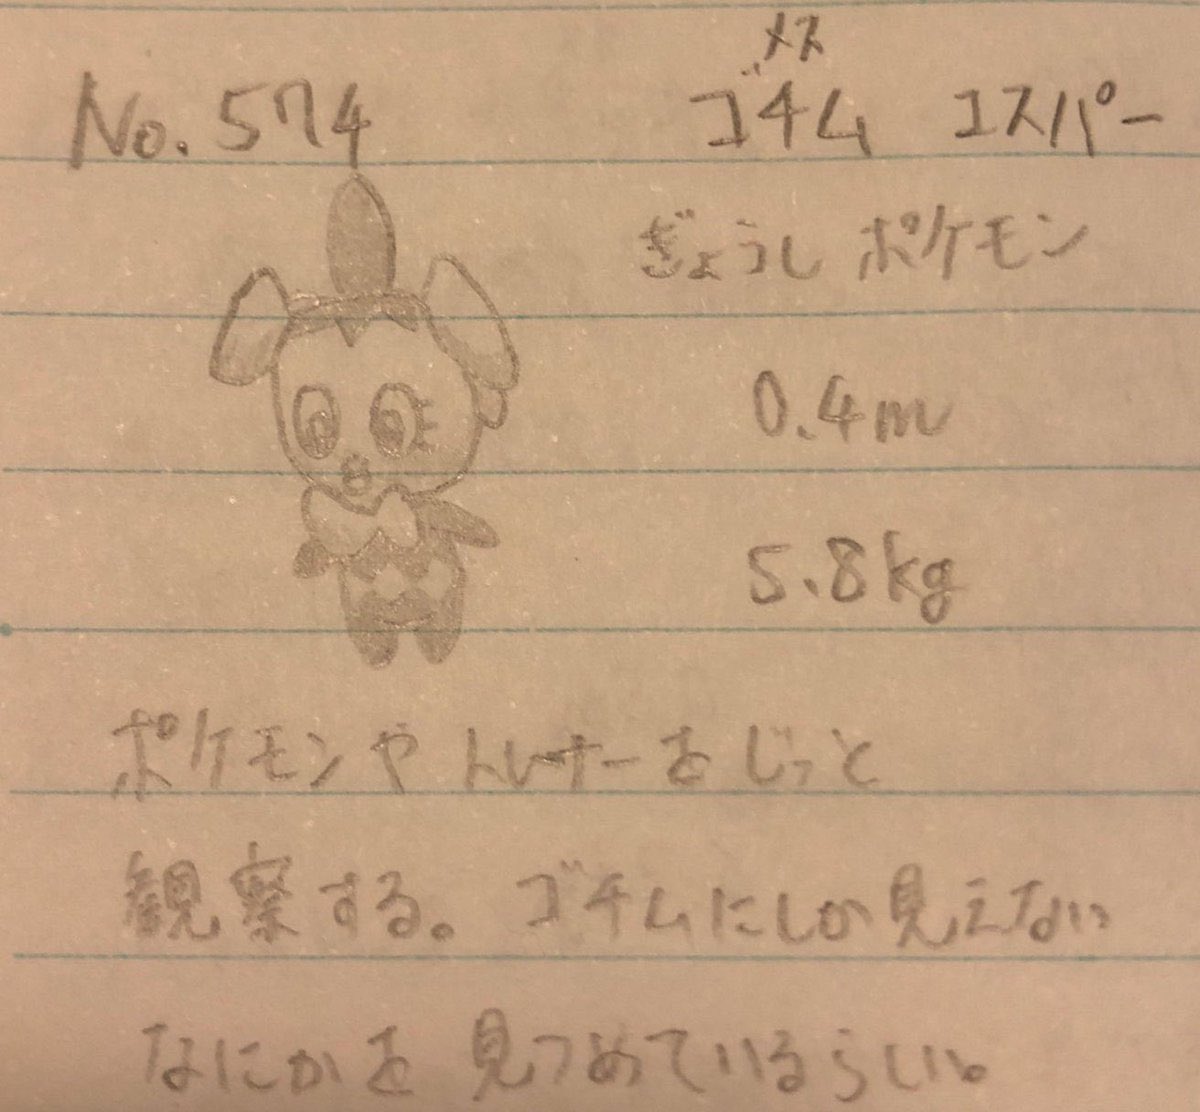 メス
No.574 ゴチム エスパー
ぎょうしポケモン
0.4m
5.8kg
ポケモンやトレーナーをじっと
観察する。ゴチムにしか見えない
なにかを見つめているらしい。